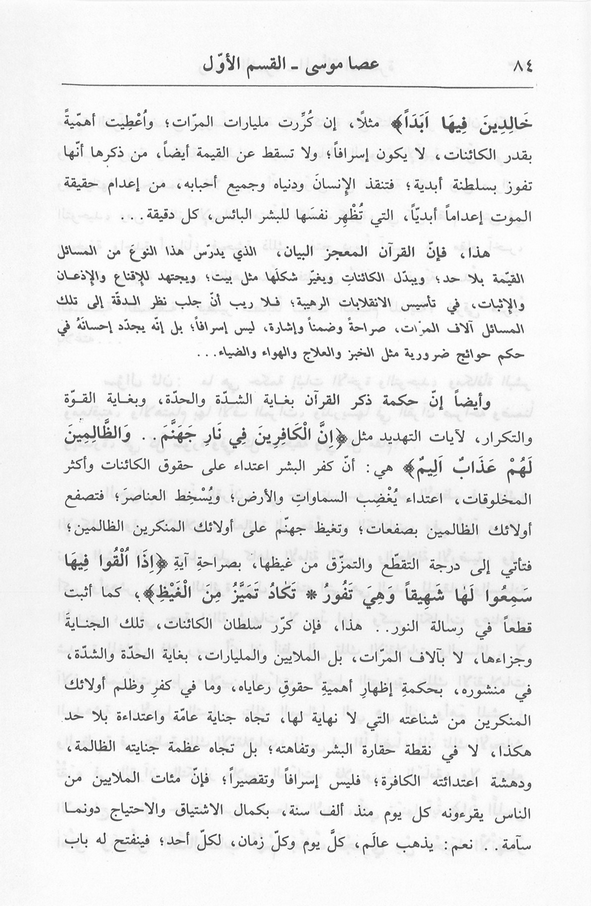 ٨٤ عصا موسى ـ القسم الأوّل
خَالِدِينَ فِيهَا اَبَدَاً﴾ مثلًا، إن كُرِّرت مليارات المرّات؛ وأُعْطِيت أهمّيةً
بقدر الكائنات، لا يكون إسرافاً؛ ولا تسقط عن القيمة أيضاً، من ذكرها أنّها
تفوز بسلطنة أبدية؛ فتنقذ الإنسانَ ودنياه وجميع أحبابه، من إعدام حقيقة
الموت إعداماً أبديّاً، التي تُظْهِر نفسَها للبشر البائس، كل دقيقة...
هذا، فإنّ القرآن المعجز البيان، الذي يدرّس هذا النوعَ من المسائل
القيّمة بلا حد؛ ويبدّل الكائناتِ ويغيّر شكلَها مثل بيت؛ ويجتهد للإقناع والإذعان
والإثبات، في تأسيس الانقلابات الرهيبة؛ فلا ريب أنّ جلب نظر الدقّة إلى تلك
المسائل آلاف المرّات، صراحةً وضمناً وإشارة، ليس إسرافاً؛ بل إنه يجدّد إحسانَهُ في
حكم حوائج ضرورية مثل الخبز والعلاج والهواء والضياء...
وأيضاً إنّ حكمة ذكر القرآن بغاية الشدّة والحدّة، وبغاية القوّة
والتكرار، لآيات التهديد مثل ﴿إِنَّ الْكَافِرِينَ فِي نَارِ جَهَنَّمَ.. وَالظَّالِمِينَ
لَهُمْ عَذَابٌ اَلِيمٌ﴾ هي: أنّ كفر البشر اعتداء على حقوق الكائنات وأكثر
المخلوقات، اعتداء يُغْضِب السماواتِ والأرضَ؛ ويُسْخِط العناصرَ؛ فتصفع
أولائك الظالمين بصفعات؛ وتغيظ جهنّم على أولائك المنكرين الظالمين؛
فتأتي إلى درجة التقطّع والتمزّق من غيظها، بصراحةِ آيةِ ﴿إِذَا اُلْقُوا فِيهَا
سَمِعُوا لَهَا شَهِيقاً وَهِيَ تَفُورُ * تَكَادُ تَمَيَّزُ مِنَ الْغَيْظِ﴾، كما أثبت
قطعاً في رسالة النور.. هذا، فإن كرّر سلطان الكائنات، تلك الجنايةَ
وجزاءها، لا بآلاف المرّات، بل الملايين والمليارات، بغاية الحدّة والشدّة،
في منشوره، بحكمةِ إظهارِ أهميةِ حقوقِ رعاياه، وما في كفرِ وظلمِ أولائك
المنكرين من شناعته التي لا نهاية لها، تجاه جناية عامّة واعتداءة بلا حد
هكذا، لا في نقطة حقارة البشر وتفاهته؛ بل تجاه عظمة جنايته الظالمة،
ودهشة اعتدائته الكافرة؛ فليس إسرافاً وتقصيراً؛ فإنّ مئات الملايين من
الناس يقرءونه كل يوم منذ ألف سنة، بكمال الاشتياق والاحتياج دونما
سآمة.. نعم: يذهب عالَم، كلَّ يوم وكلّ زمان، لكلّ أحد؛ فينفتح له باب